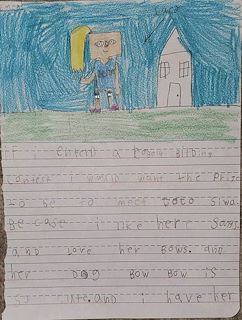 If I enterd a
contest I would want the Prize
to be to meet JoJo Siwa.
Be case I like her Sons.
and Love her Bows. and
her Dog Bow Bow is
so cute. and I have her